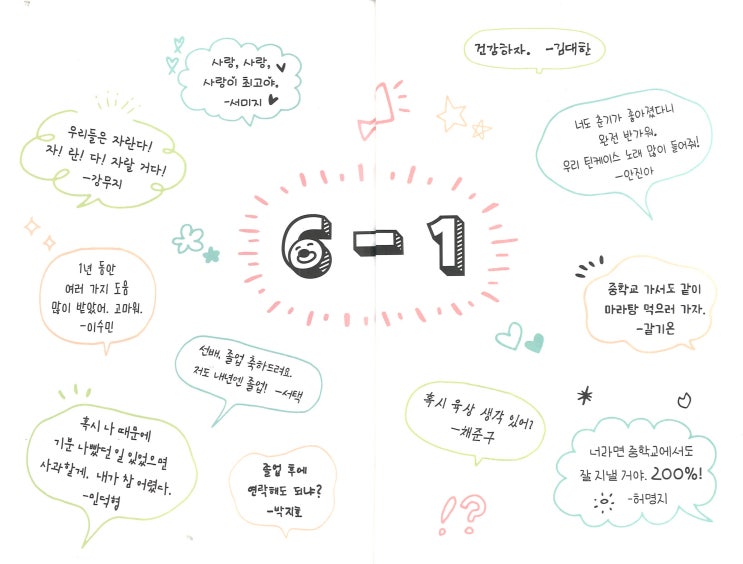 사랑, 사랑,
사랑이 최고야.
-서미지
건강하자. -김대한
우리들은 자란다!
자! 란! 다! 자랄 거다!
-강무지
너도 춘기가 좋아졌다니
완전 반가워.
우리 틴케이스 노래 많이 들어줘!
-안진아
6-1
1년 동안
여러 가지 도움
많이 받았어. 고마워.
-이수민
중학교 가서도 같이
마라탕 먹으러 가자.
-갈기온
선배, 졸업 축하드려요.
저도 내년엔 졸업! -서택
혹시 육상 생각 있어?
-채준구
혹시 나 때문에
기분 나빴던 일 있었으면
사과할게. 내가 참 어렸다.
-인덕형
졸업 후에
연락해도 되냐?
-박지호
너라면 중학교에서도
잘 지낼 거야. 200%!
-허명지
!?